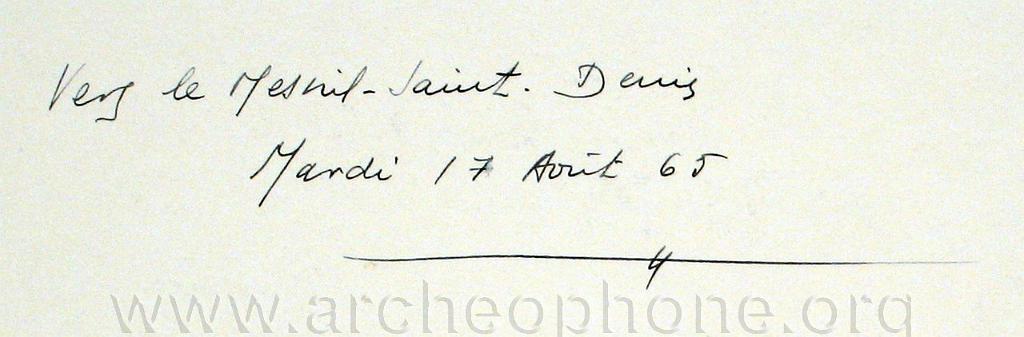 Vers le Mesnil-Saint-Denis
Mardi 17 Août 65
www.archeophone.org